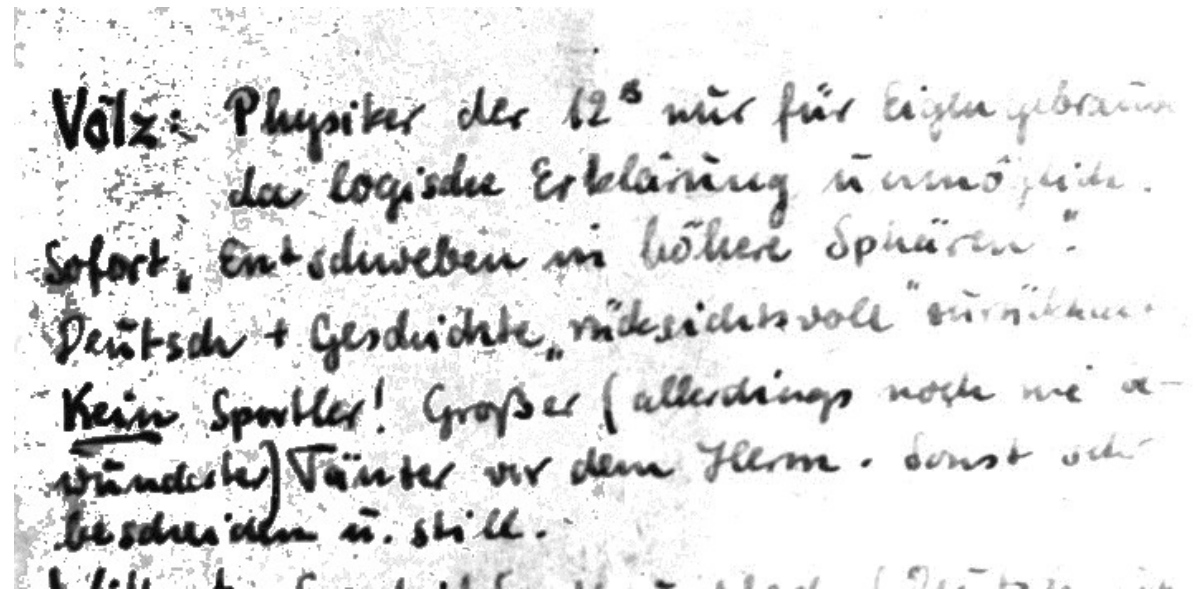 Völz: Physiker der 12ᴮ nur für Eigengebrauch
da logische Erklärung unmöglich.
Sofort „Entschweben in höhere Sphären".
Deutsch + Geschichte „rücksichtsvoll"
Kein Sportler! Großer (allerdings noch nie
Tänzer vor dem Herrn. Sonst
bescheiden u. still.